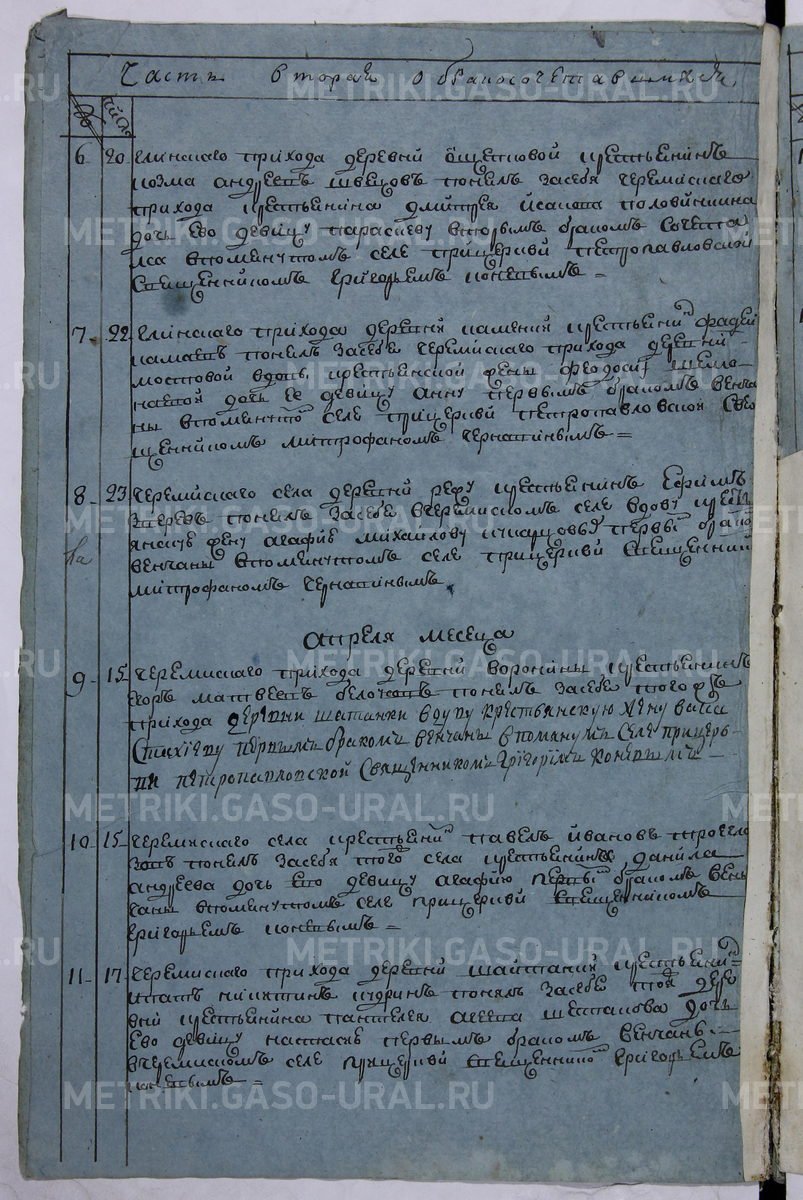 Часть вторая о бракосочетавшихся,
№ число
6 20 Клинскаго прихода деревни Ощепковой крестьянинъ
козма андреевъ швецовъ понялъ засебя черемискаго
прихода крестьянина дмитрея Исакова половинкина
дочь Ево девицу парасковю вторымъ бракомъ сочета
лся впомянутомъ селе прицеркви петропавловской
священникомъ григорьемъ коневымъ =
7 22 прихода деревни каменки крестьянинъ фадей
понялъ засебе черемискаго прихода деревни
мостовой вдовы крестьянской жены федосьи
дочь ее девицу анну первымъ бракомъ венча
ны впомянутомъ селе прицеркви петропавловской свя
щенникомъ митрофаномъ чернавинымъ =
8 23 Черемискаго села деревни режу крестьянинъ Ефимъ
зверевъ понялъ засебе вчеремискомъ селе вдову крест
янскую жену агафию михайлову первымъ бракомъ
венчаны впомянутомъ селе прицеркви священник
митрофаномъ чернавинымъ
апреля месеца
9 15 Черемискаго прихода деревни воронины крестьянинъ
матвеевъ понялъ засебе того ж
прихода деревни шатанки вдову крестьянскую жену васса
Стахиеву первымъ бракомъ венчаны впомянумъ селе прицерь-
кви петропавловской Священникомъ Григориемъ Коневымъ —
10 15 Черемискаго села крестьянинъ павелъ Ивановъ
понялъ засебя того села крестьянина данила
андреева дочь Ево девицу агафию первы бракомъ вен
чаны впомянутомъ селе прицеркви священникомъ
григорьемъ коневымъ =
11 17 Черемискаго прихода деревни шайтанки крестьянинъ
игнатъ никитинъ понялъ засебе той дере
вни крестьянина пантелея дочь
Ево девицу настасю первымъ бракомъ венчанъ —
вчеремискомъ селе прицеркви священнико григорьемъ
коневымъ =
METRIKI.GASO-URAL.RU